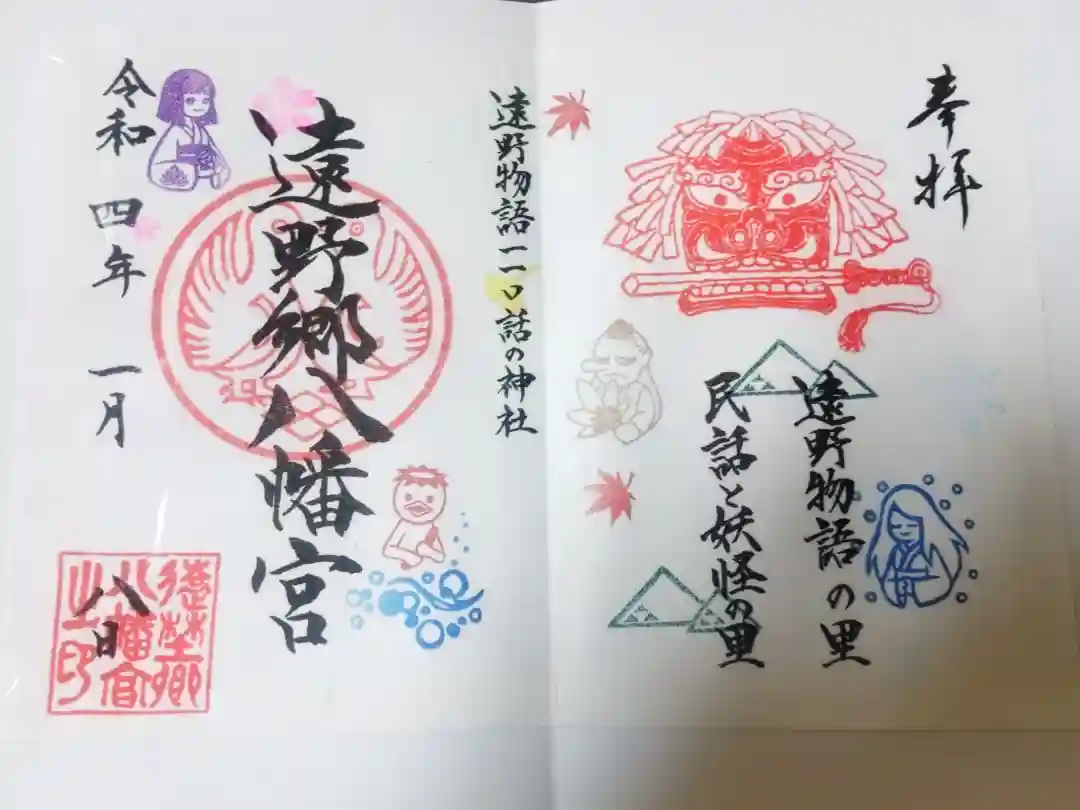 奉拝
遠野物語の里
民話と妖怪の里
遠野物語一一〇話の神社
遠野郷八幡宮
令和四年一月八日
遠埜郷
八幡宮
之印